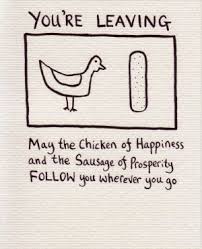 YOU'RE LEAVING
May the Chicken of Happiness
and the Sausage of Prosperity
FOLLOW you wherever you go